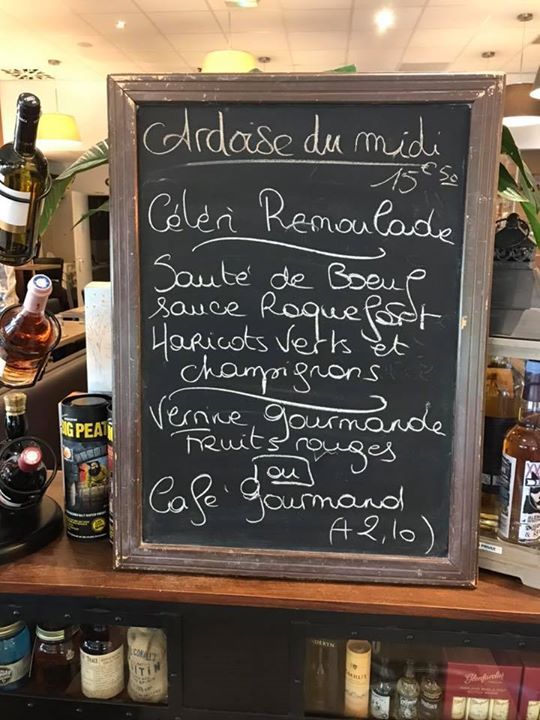 Ardoise du midi
15€50
Céléri Remoulade
Sauté de Boeuf
sauce Roquefort
Haricots Verts et
champignons
Verrine Gourmande
Fruits rouges
ou
Café Gourmand
(+2,10)
BIG PEAT
Glenfarclas